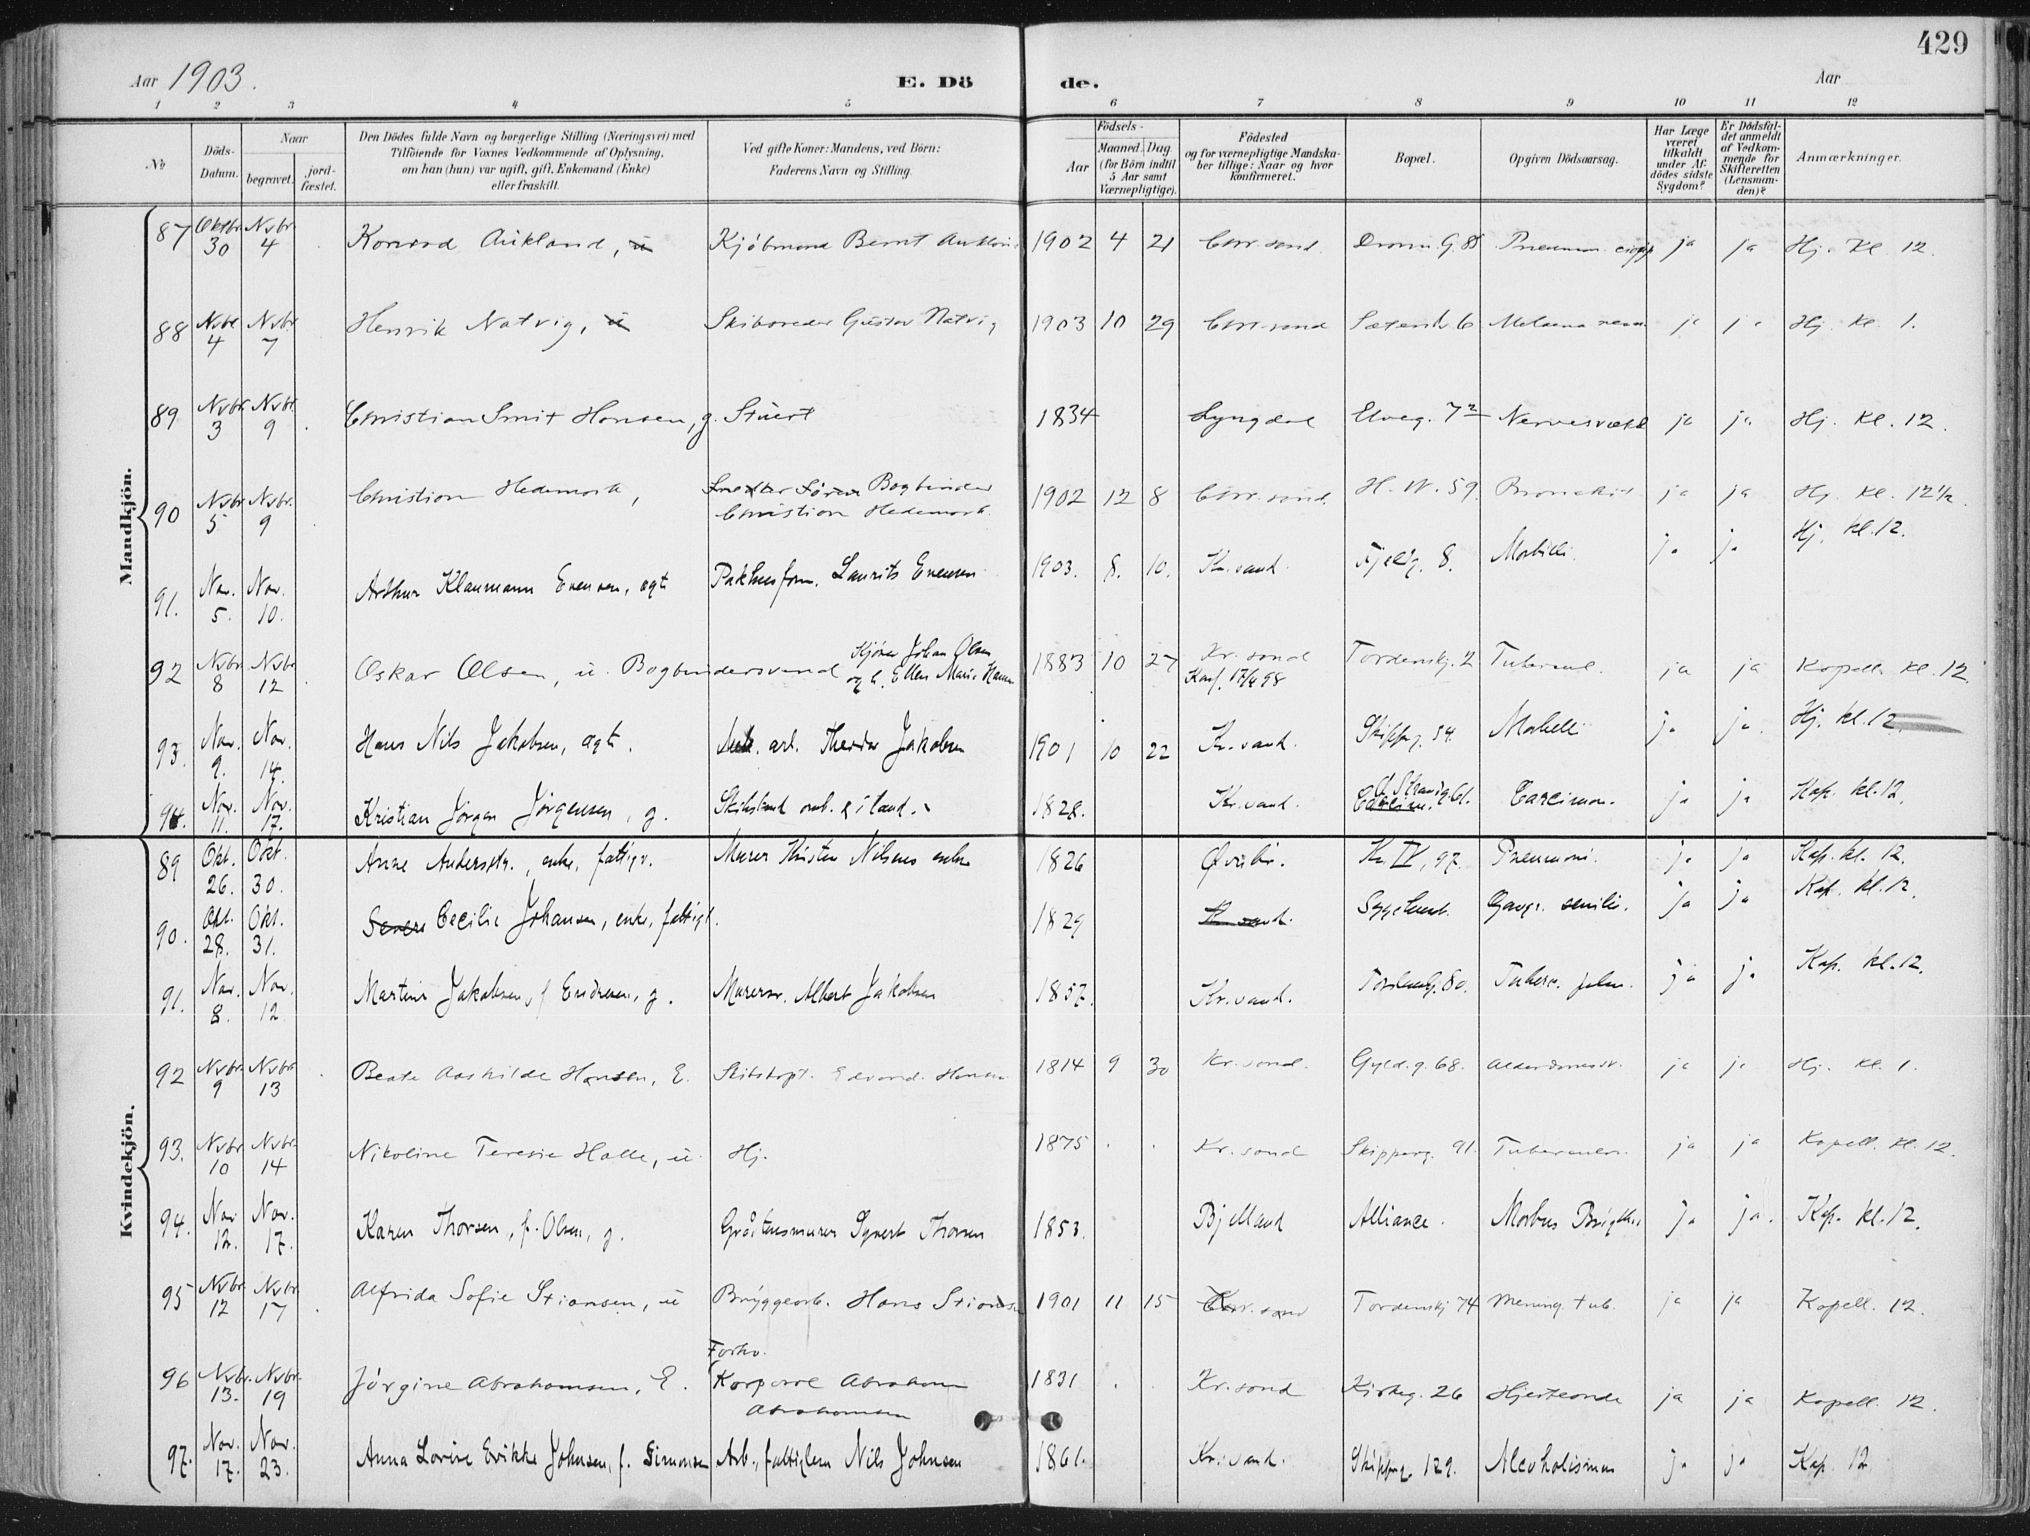 429
Aar 1903.
E. Dö de.
Aar
1 2 3 4 5 6 7 8 9 10 11 12
No
Döds-Datum.
Naar begravet. jord-fæstet.
Den Dödes fulde Navn og borgerlige Stilling (Næringsvei) med Tilföiende for Voxnes Vedkommende af Oplysning, om han (hun) var ugift, gift, Enkemand (Enke) eller fraskilt.
Ved gifte Koner: Mandens, ved Börn: Faderens Navn og Stilling.
Födsels-
Aar
Maaned. Dag. (for Börn indtil 5 Aar samt Værnepligtige).
Födested og for værnepligtige Mandska-ber tillige: Naar og hvor konfirmeret.
Bopæl.
Opgiven Dödsaarsag.
Har Læge været tilkaldt under Af-dödes sidste Sygdom?
Er Dödsfal-det anmeldt af Vedkom-mende for Skifteretten (Lensman-den)?
Anmærkninger.
Mandkjön.
87 Oktbr. 30 Nvbr. 4 Konrad Aukland, u Kjöbmand Bernt 1902 4 21 Chr.sand Dronn.G. ja ja Hj. Kl. 12.
88 Nvbr. 4 Nvbr. 7 Henrik Natvig, u Skibsreder Gustav Natvig 1903 10 29 Chr.sand 6 Melaena ja ja Hj. Kl. 1.
89 Nvbr. 3 Nvbr. 9 Christian Smit Hansen, g. Stuert 1834 Lyngdal Elveg. ja ja Hj. Kl. 12.
90 Nvbr. 5 Nvbr. 9 Christian Hedemark, Bogbinder Christian Hedemark 1902 12 8 Chr.sand H. W. 59 ja ja Hj. Kl. 12½.
91. Nov. 5. Nov. 10. Arthur Klaumann Evensen, ægt. Pakhusform. Laurits Evensen 1903. 8. 10. Kr.sand. 8. Morbilli. ja ja Hj. kl. 12.
92 Nvbr 8 Nvbr 12 Oskar Olsen, u. Bogbindersvend Johan Olsen og h. Ellen Marie 1883 10 27 Kr.sand Konf. 17/4 98 Tordenskj. 2 Tubercul. ja ja Kapell. Kl. 12.
93. Nov. 9. Nov. 14. Hans Nils Jakobsen, ægt. Theodor Jakobsen 1901 10 22 Kr.sand. Skipperg. 54. Morbilli ja ja. Hj. kl. 12
94. Nov. 11. Nov. 17. Kristian Jörgen Jörgensen, g. 1828. Kr.sand. 61. Carcinom. ja ja Kap. kl. 12.
Kvindekjön.
89 Okt. 26. Okt. 30. Anne Andersdtr., enke, fattigv. Murer Nilsens enke 1826 Øvrebö. Kr. IV, 97. Pneumoni. ja ja Kap. kl. 12.
90. Okt. 28. Okt. 31. Cecilie Johansen, enke, fattigl. 1829 Kr.sand. Sygehuset. Gangr. senilis. ja ja Kap. kl. 12.
91. Nov. 8. Nov. 12. Martine Jakobsen, f. Endresen, g. Murersv. Albert Jakobsen 1857. Kr.sand. 80. Tuberc. pulm. ja ja Kap. kl. 12.
92 Nvbr. 9 Nvbr. 13 Beate Aaskilde Hansen, E. Skibskapt. Edvard Hansen 1814 9 30 Kr.sand. Gyld.g. 68. ja ja Hj. Kl. 1.
93. Nvbr 10 Nvbr. 14 Nikoline Teresie Halle, u. Hj. 1875 Kr.sand Skipperg. 91. ja ja Kapell. Kl. 12.
94. Nov 12. Nov. 17. Karen Thorsen, f. Olsen, g. Gråstensmurer Syvert Thorsen 1853. Bjelland Alliance. Morbus Brigthii ja ja. Kap. kl. 12.
95 Nvbr. 12 Nvbr. 17 Alfrida Sofie Stiansen, u Bryggearb. Hans Stiansen 1901 11 15 Kr.sand Tordenskj 74 Mening. tub. ja ja Kapell. 12.
96 Nvbr. 13. Nvbr. 19 Jörgine Abrahamsen, E. Forhv. Korporal Abraham Abrahamsen 1831 Kr.sand Kirkeg. 26 Hjerteonde ja ja Kapell. 12.
97. Nov. 17. Nov. 23. Anna Lovise Erikke Johnsen, f. Simonsen Arb., fattiglem Nils Johnsen 1861. Kr.sand. Skipperg. 129. Alcoholismus ja ja Kap. 12